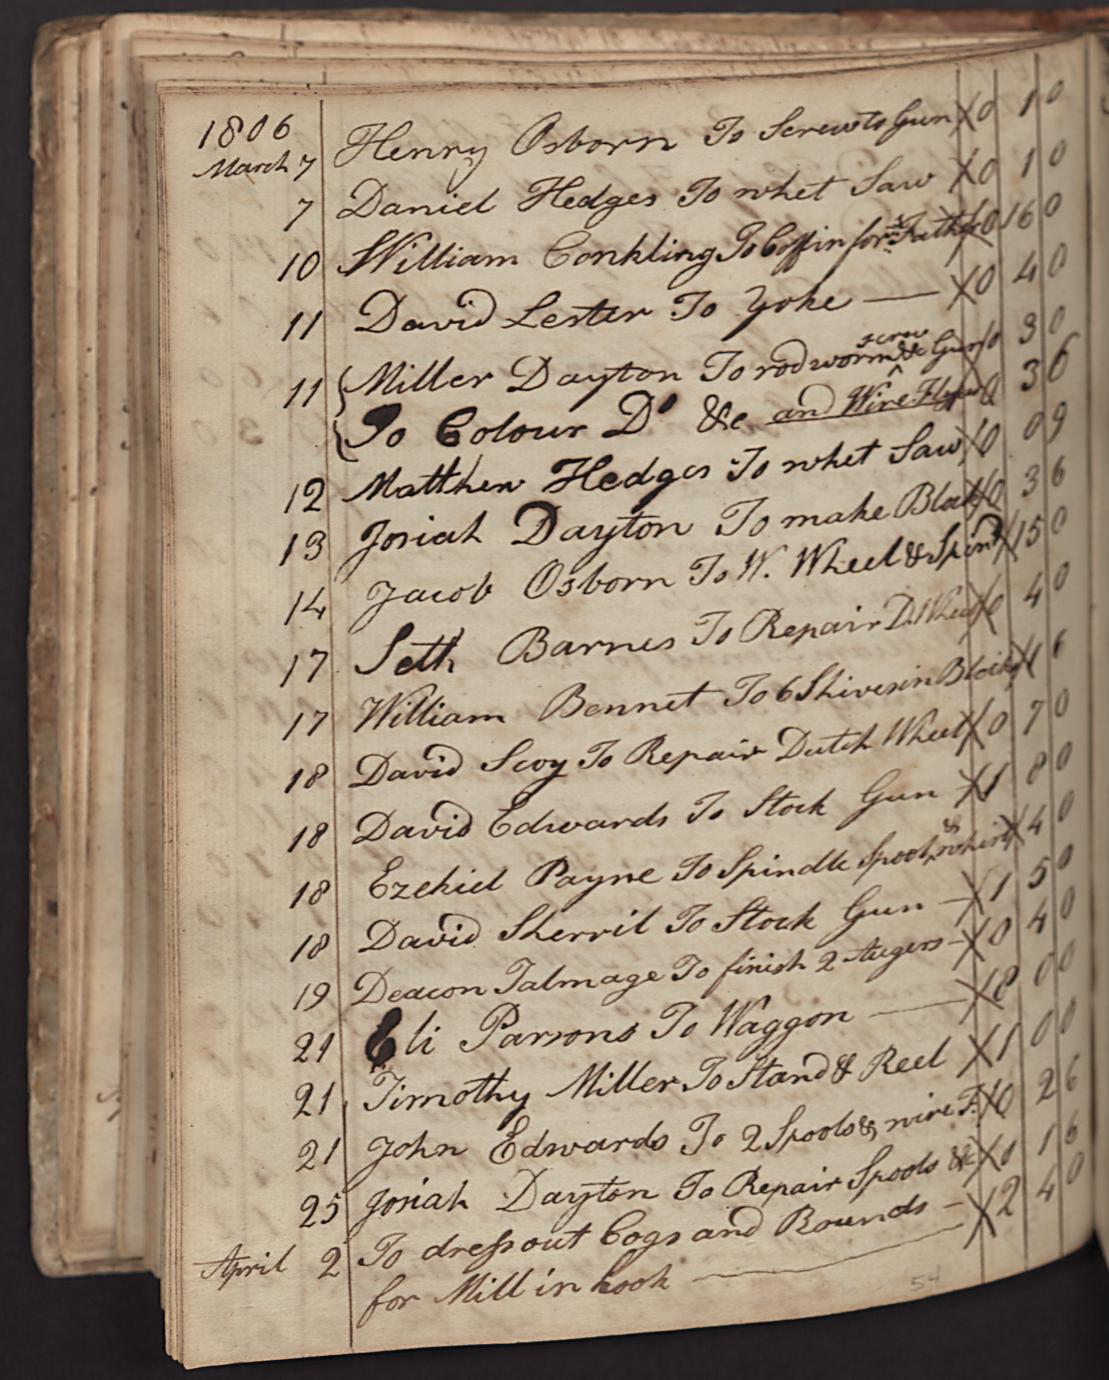 1806
March 7 Henry Osborn To Screw to Gun X 0 1 0
7 Daniel Hedges To whet Saw X 0 1 0
10 William Conkling To Coffin for Father X 0 16 0
11 David Lester To Yoke — X 0 4 0
11 Miller Dayton To rod worm screw & Gun 0 3 0
To Colour Do &c and Wire Flyer 0 3 6
12 Matthew Hedges To whet Saw X 0 0 9
13 Josiah Dayton To make X 0 3 6
14 Jacob Osborn To W. Wheel & X 15 0
17 Seth Barnes To Repair D. Wheel X 0 4 0
17 William Bennet To 6 Shives in Blocks X 1 6
18 David Scoy To Repair Dutch Wheel X 0 7 0
18 David Edwards To Stock Gun X 1 8 0
18 Ezekiel Payne To Spindle Spool, & whirl X 4 0
18 David Sherril To Stock Gun — X 1 5 0
19 Deacon Talmage To finish 2 Augers — X 0 4 0
21 Eli Parsons To Waggon — X 8 0 0
21 Timothy Miller To Stand & Reel X 1 0 0
21 John Edwards To 2 Spools & wire F. X 0 2 6
25 Josiah Dayton To Repair Spools &c X 0 1 6
April 2 To dress out Cogs and Rounds — X 2 4 0
for Mill in hook —
54